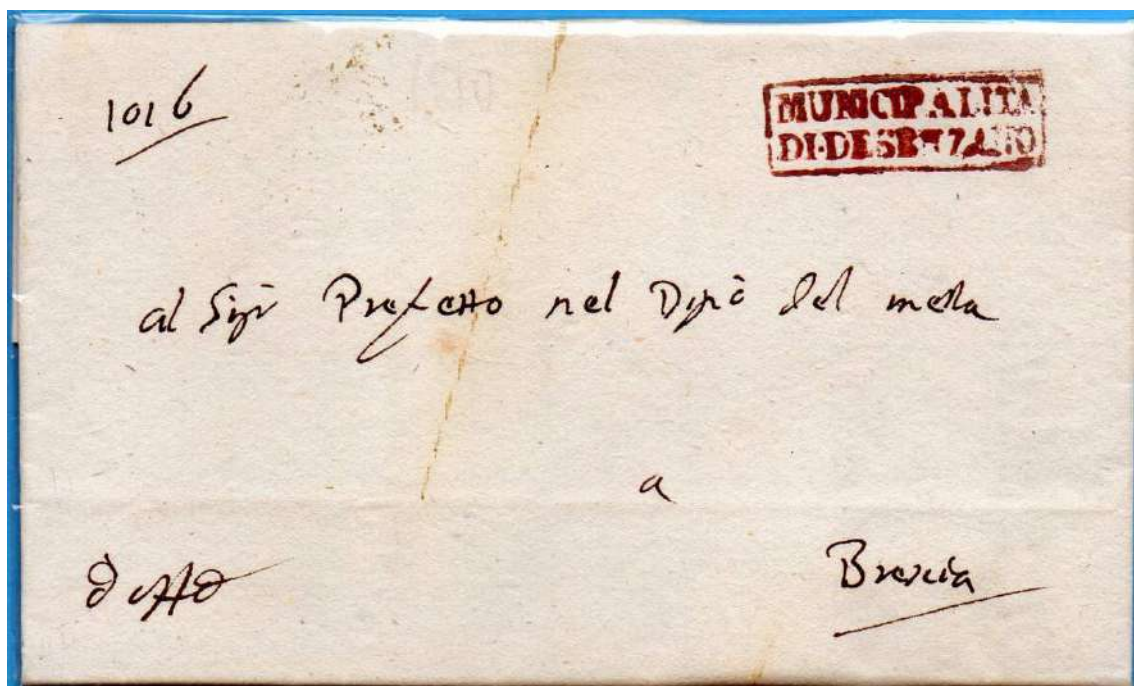 1016
MUNICIPALITA
DI·DESENZANO
al Sigr Prefetto nel Dipo del mella
a
Brescia